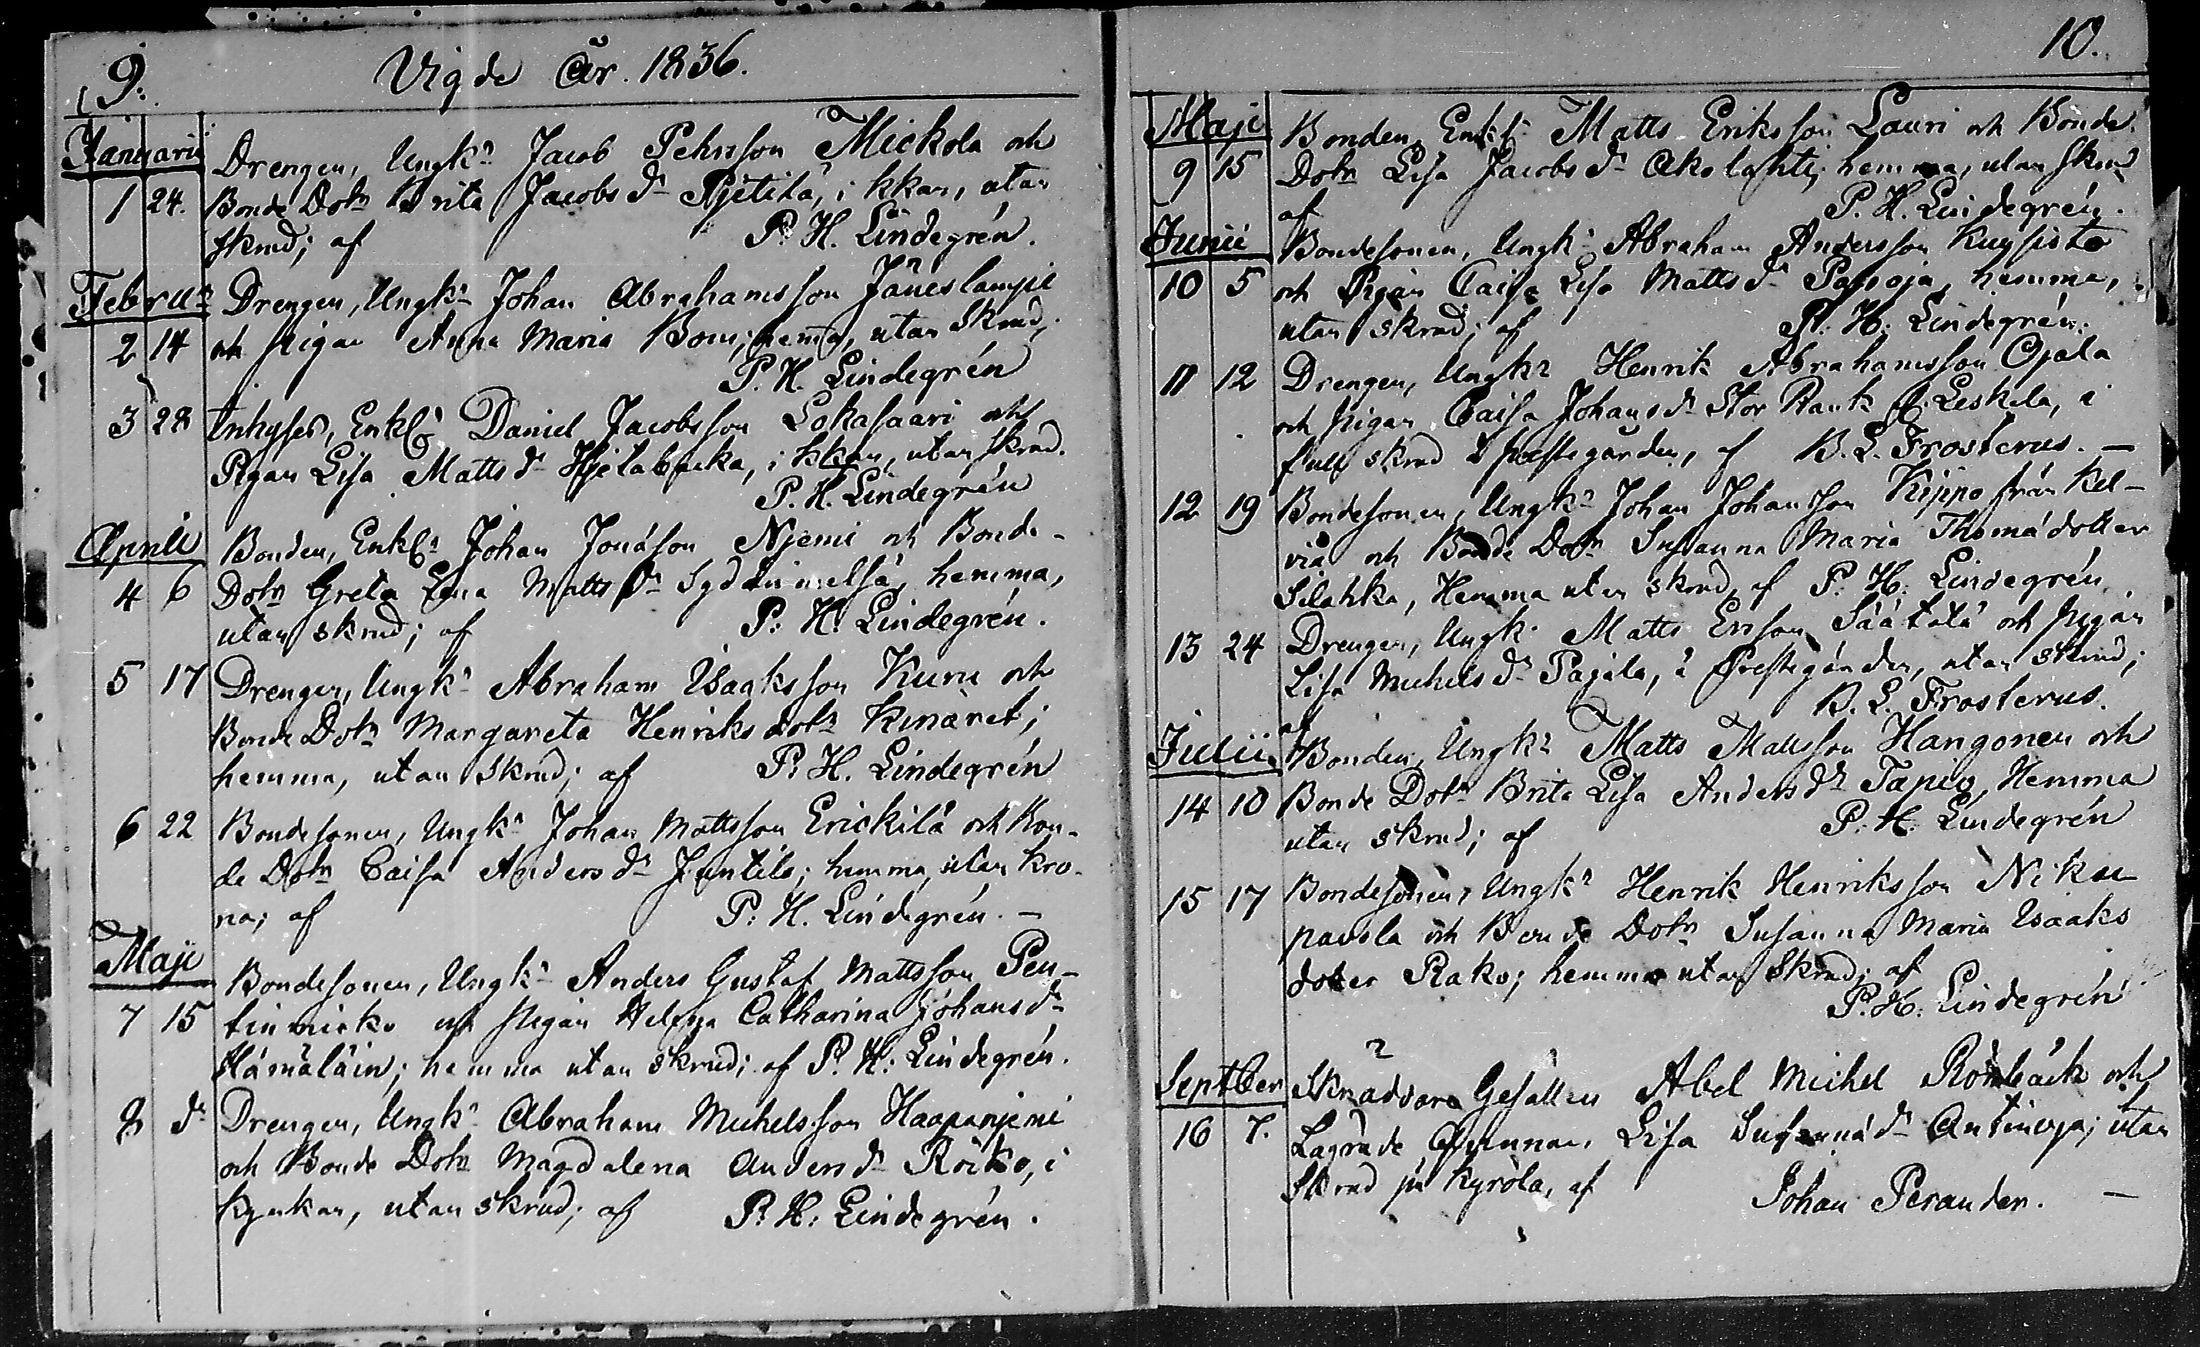 9.
Vigde År. 1836.
Januarii
Drengen, Ungk:n Jacob Pehrsson Mickola och
1 24. Bonde Dotr Brita Jacobs dr Pjetilä, i kkan, utan
skrud; af P. H. Lindegrén.
Februr Drengen, Ungkn Johan Abrahamsson Jäneslampi
2 14 och pigan Anna Maria Bom; hema, utan skrud;
P. H. Lindegrén
3 28 Inhyses, Enkl: Daniel Jacobsson Lokasaari och
Pigan Lisa Matts dr Hjetabacka, i kkan, utan skrud.
P. H. Lindegrén
Aprill Bonden, Enkl: Johan Jonasson Njemi och Bonde-
4 6 Dotr Greta Lena Matts dr Syd, hemma,
utan skrud; af P: H: Lindegrén.
5 17 Drengen, Ungkn Abraham Isaksson Kuru och
Bonde Dotr Margareta Henriks dotr Kinaret;
hemma, utan skrud; af P: H. Lindegrén
6 22 Bondesonen, Ungkn Johan Mattsson Erickilä och Bon-
de Dotr Caisa Anders dr Juntila; hemma, utan kro-
na; af P: H. Lindegrén. –
Maji Bondesonen, Ungkn Anders Gustaf Mattsson Pen-
7 15 tinmicko och pigan Helena Catharina Johans dr
Hämäläin; hemma utan skrud; af P. H: Lindegrén.
8 dr Drengen, Ungkn Abraham Michelsson Haapanjemi
och Bonde Dotr Magdalena Anders dr Röiko, i
kyrkan, utan skrud; af P: H: Lindegrén.
10.
Maji Bonden, Enkl: Matts Eriksson Lauri och Bonde
9 15 Dotr Lisa Jacobs dr Akolahti, hemma, utan skrud
af P. H. Lindegrén.
Junii Bondesonen, Ungkn Abraham Andersson Kuusisto
10 5 och Pigan Caisa Lisa Matts dr Passoja, hemma,
utan skrud; af P: H: Lindegrén.
11 12 Drengen, Ungkn Henrik Abrahamsson Ojala
och pigan Caisa Johans dr Stor Rank Leskela, i
full skrud i prestegården, af B. L. Frosterus. –
12 19 Bondesonen, Ungkn Johan Johansson Kippo från Kel-
viå och Bonde Dotr Susanna Maria Thomädotter
Silahka, Hemma utan skrud, af P: H: Lindegrén
13 24 Drengen, Ungk: Matts Ersson Säätälä och pigan
Lisa Michels dr Pajala, i Prestegården, utan skrud;
af B. L. Frosterus.
Julii Bonden, Ungkn Matts Mattsson Hangonen och
14 10 Bonde Dotr Brita Lisa Anders dr Tapio, Hemma
utan skrud; af P: H: Lindegrén
15 17 Bondesonen, Ungkn Henrik Henriksson Niku-
pavola och Bonde Dotr Susanna Maria Isaaks
dotter Rako; hemma utan skrud; af
P. H: Lindegrén
September Skraddare Gesällen Abel Michel Rönbäck och
16 7. Lägrade Qvinnan Lisa Susannä dr Antinoja; utan
Skrud på Kyröla, af Johan Perander. –